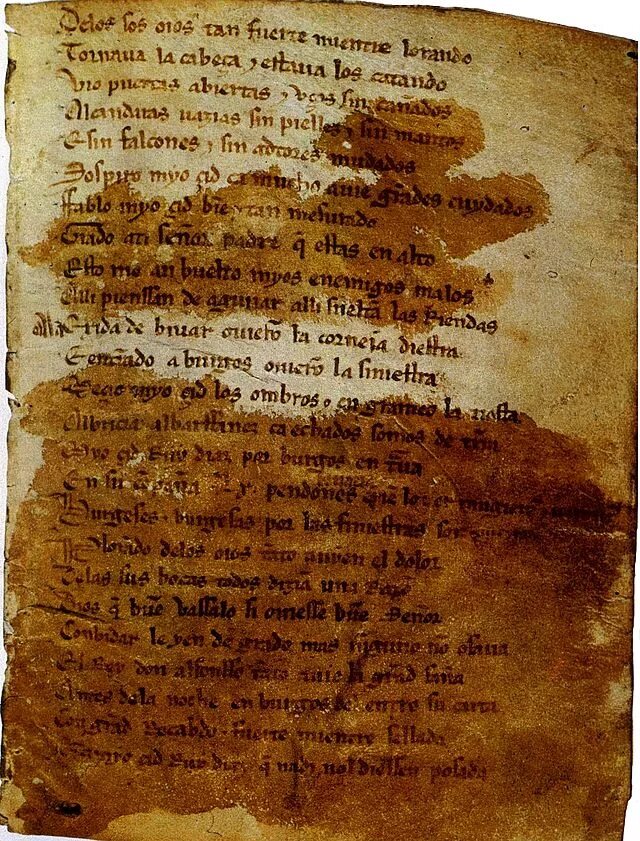 Delos sos oios tan fuerte mientre lorando
Tornaua la cabeça ⁊ estaua los catando
Vio puertas abiertas ⁊ vços sin cañados
Alcandaras uazias sin pielles ⁊ sin mantos
E sin falcones ⁊ sin adtores mudados
Sospiro myo çid ca mucho auie grãdes cuydados
Ffablo myo çid biẽ ⁊ tan mesurado
Grado ati señor padre q̃ estas en alto
Esto me an buelto myos enemigos malos
Alli pienssan de aguiiar alli sueltã las Riendas
Ala exida de biuar ouierõ la corneia diestra
E entrãdo a burgos ouierõ la siniestra
Meçio myo çid los ombros ⁊ en grameo la tiesta
Albricia albarffanez ca echados somos de tr̃ra
Myo çid Ruy diaz por burgos en trãua
En su cõpaña Lx pendones
Burgeses ⁊ burgesas por las finiestras son
Plorãdo delos oios tãto auyen el dolor
Delas sus bocas todos dizian una Razõ
Dios q̃ buẽ vassalo si ouiesse buẽ Señor
Conbidar le yen de grado mas ninguno no osaua
El Rey don alfonsso tãto auie la grãd saña
Antes dela noche en burgos del entro su carta
Con grãd Recabdo ⁊ fuerte mientre sellada
Que a myo çid Ruy diaz q̃ nadi nol diessen posada